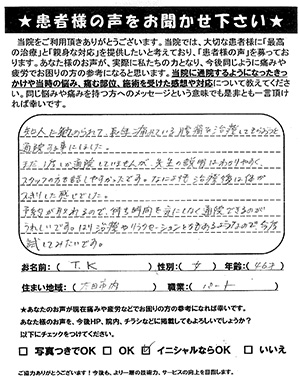 ★患者様の声をお聞かせ下さい★
当院をご利用頂きありがとうございます。当院では、大切な患者様に「最高
の治療」と「親身な対応」を提供したいと考えており、「患者様の声」を募ってお
ります。あなた様のお声が、実際に私たちの力となり、今後同じように痛みや
疲労でお困りの方の参考になると思います。当院に通院するようになったきっ
かけや当時の悩み、痛む部位、施術を受けた感想や対応について教えてくださ
い。同じ悩みや痛みを持つ方へのメッセージという意味でも是非とも一言頂け
れば幸いです。
知人に勧められて、長年痛めている腰痛を治療してもらおうと
通院の事にしました。
まだ1度しか通院していませんが、先生の説明はわかりやすく、
スタッフの方も話しやすかったです。なにより治療後は体が
すっきりした感じでした。
予約が取れるので、待ち時間を気にせず通院できるのが
うれしいです。はり治療やリラクゼーションもあるようなので今度
試してみたいです。
お名前：( T.K ) 性別：( 女 ) 年齢：( 46才 )
住まい地域：( 六日市内 ) 職業：( パート )
★あなたのお声が現在痛みや疲労などでお困りの方の参考になれば幸いです。
あなた様のお声を、今後HP、院内、チラシなどに掲載してもよろしいでしょうか？
以下にチェックをつけてください。
□ 写真つきでOK □ OK ☑ イニシャルならOK □ いいえ
ご協力ありがとうございます！今後も、より一層の技術力、サービスの向上を目指します。